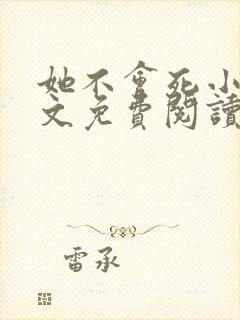 她不會死小
文免費閱讀
雷承